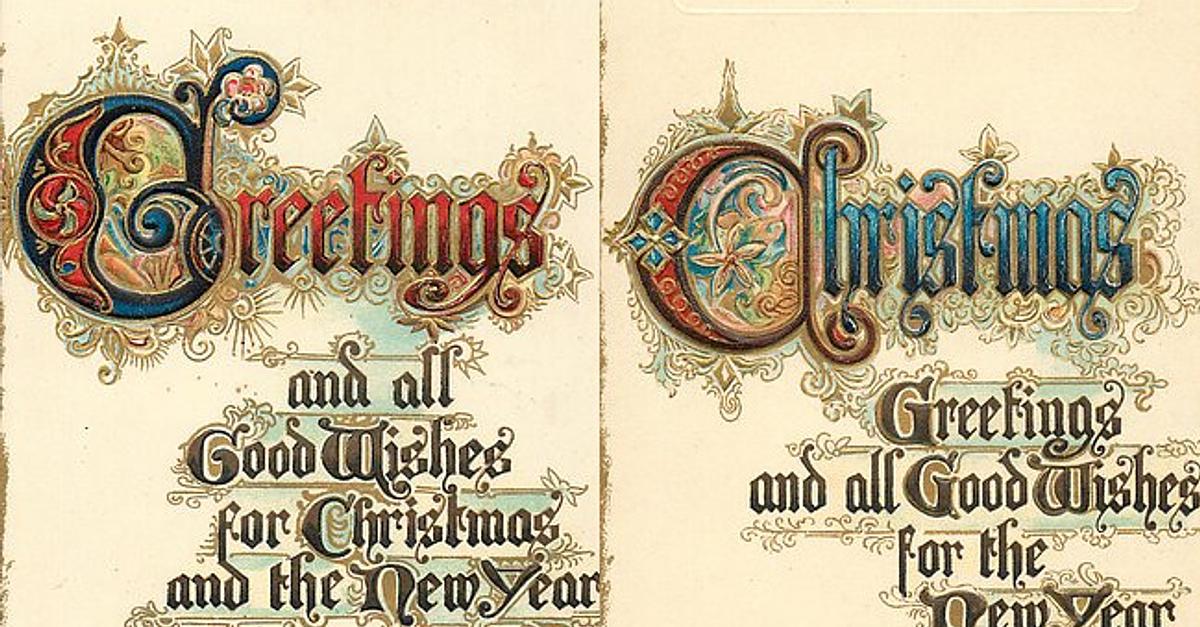 Greetings
and all
Good Wishes
for Christmas
and the New Year
Christmas
Greetings
and all Good Wishes
for the
New Year